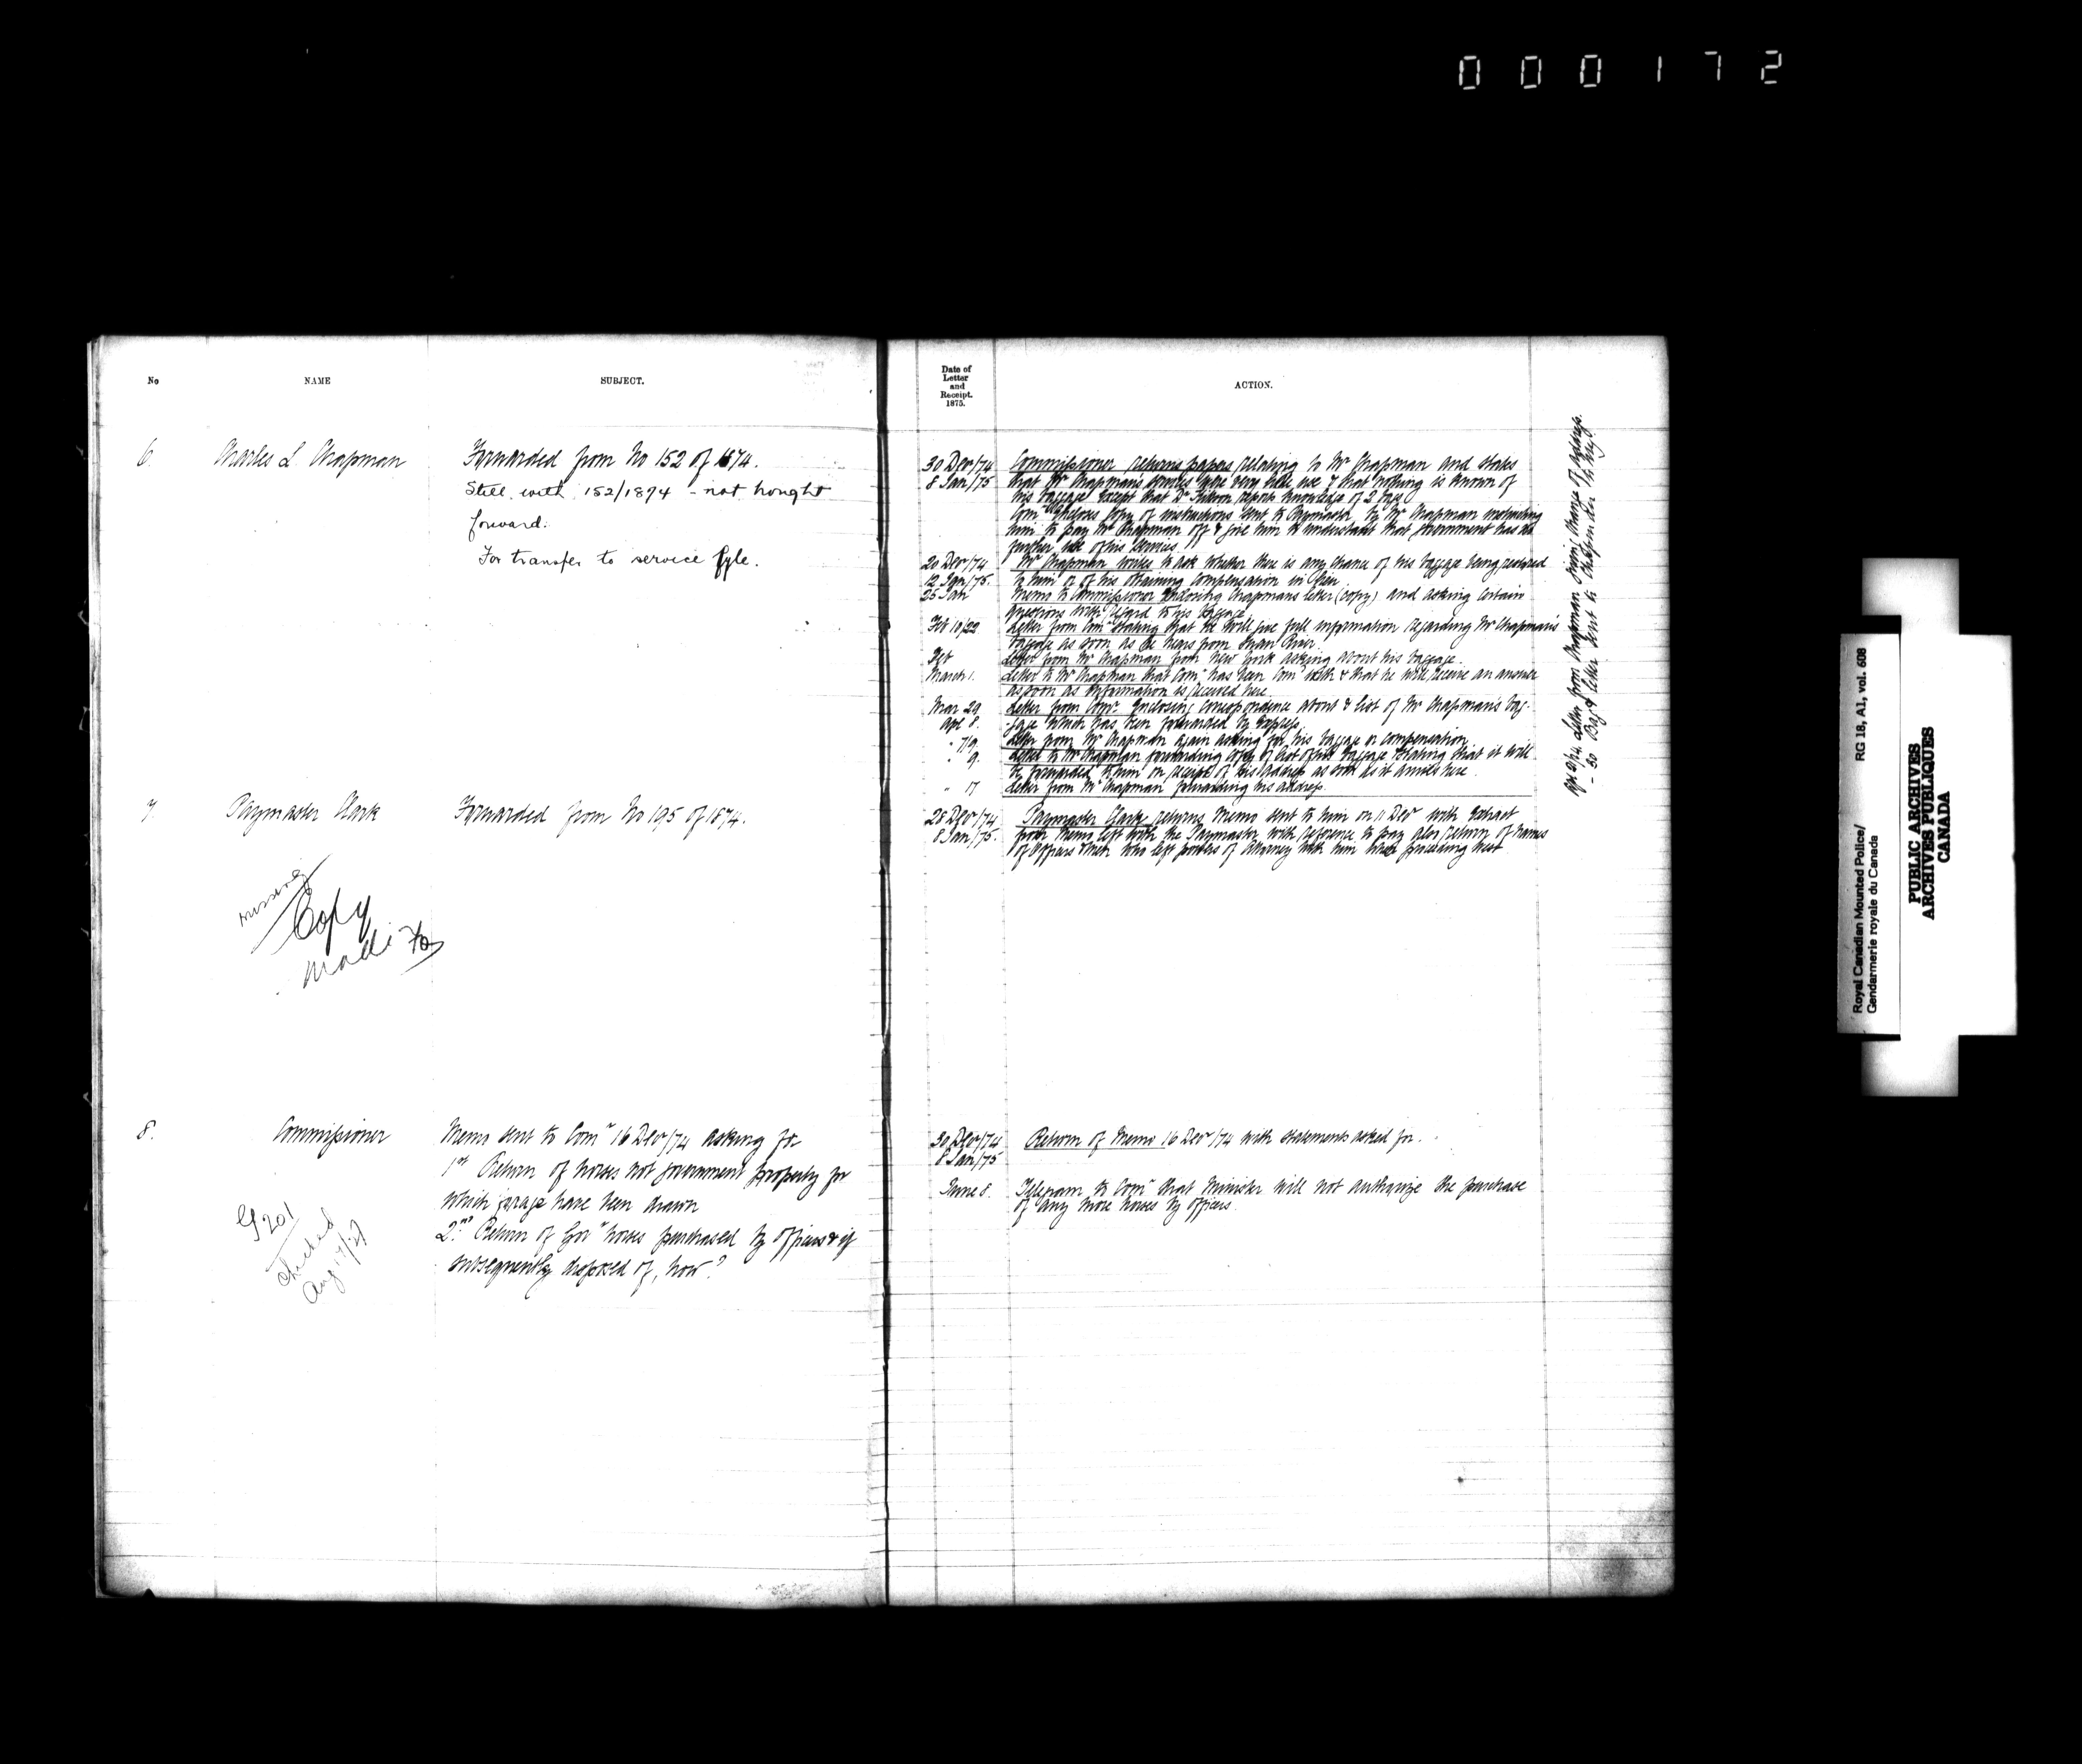 000172
No
NAME
SUBJECT.
6.
Charles L. Chapman
Forwarded from No 152 of 1874.
Still with 152/1874 - not brought
forward.
For transfer to service fyle.
7.
Paymaster Clark
Forwarded from No 195 of 1874.
missing
Copy
8.
Commissioner
Memo sent to Comr 16 Decr/74 asking for
1st Return of horses not Government property for
which forage have been drawn
2nd Return of Govt horses purchased by officers & if
subsequently disposed of, how?
G 201
checked
Aug 17/27
Date of
Letter
and
Receipt.
1875.
ACTION.
30 Decr/74 Commissioner returns papers relating to Mr Chapman and states
8 Jan/75 that Mr Chapman's services were very little use & that nothing is known of
his baggage except that Dr reports knowledge of 2 bags
Comr encloses copy of instructions sent to Paymaster by Mr Chapman instructing
him to pay Mr Chapman off & give him to understand that Government has no
further use of his services.
20 Decr/74 Mr Chapman writes to ask whether there is any chance of his baggage being restored
12 Jan/75. to him or of his obtaining compensation in lieu
25 Jan Memo to Commissioner enclosing Chapmans letter (copy) and asking certain
questions with regard to his baggage
Feb 10/22 Letter from Comr stating that he will give full information regarding Mr Chapman's
baggage as soon as he hears from Swan River.
Feb Letter from Mr Chapman from New York asking about his baggage.
March 1. Letter to Mr Chapman that Comr has been Comd with & that he will receive an answer
as soon as information is received here
Mar 29 Letter from Comr. Enclosing correspondence about & list of Mr Chapman's bag-
apl 8. -gage which has been forwarded by Express.
" 7/9 Letter from Mr Chapman again asking for his baggage or compensation
" 9. Letter to Mr Chapman forwarding copy of list of his baggage & stating that it will
be forwarded to him on receipt of his address as soon as it arrives here
" 17 Letter from Mr Chapman forwarding his address.
Letter from Chapman giving change of address.
letter sent to Chapman
28 Decr/74 Paymaster Clark returns Memo sent to him on 11 Decr with Extract
8 Jan/75. from Memo left with the Paymaster with reference to pay also return of names
of Officers & Men who left powers of Attorney with him when proceeding West
30 Decr/74 Return of Memo 16 Decr/74 with statements asked for.
8 Jan/75
June 8. Telegram to Comr that Minister will not authorize the purchase
of any more horses by officers
Royal Canadian Mounted Police/
Gendarmerie royale du Canada
RG 18, A1, vol. 608
PUBLIC ARCHIVES
ARCHIVES PUBLIQUES
CANADA